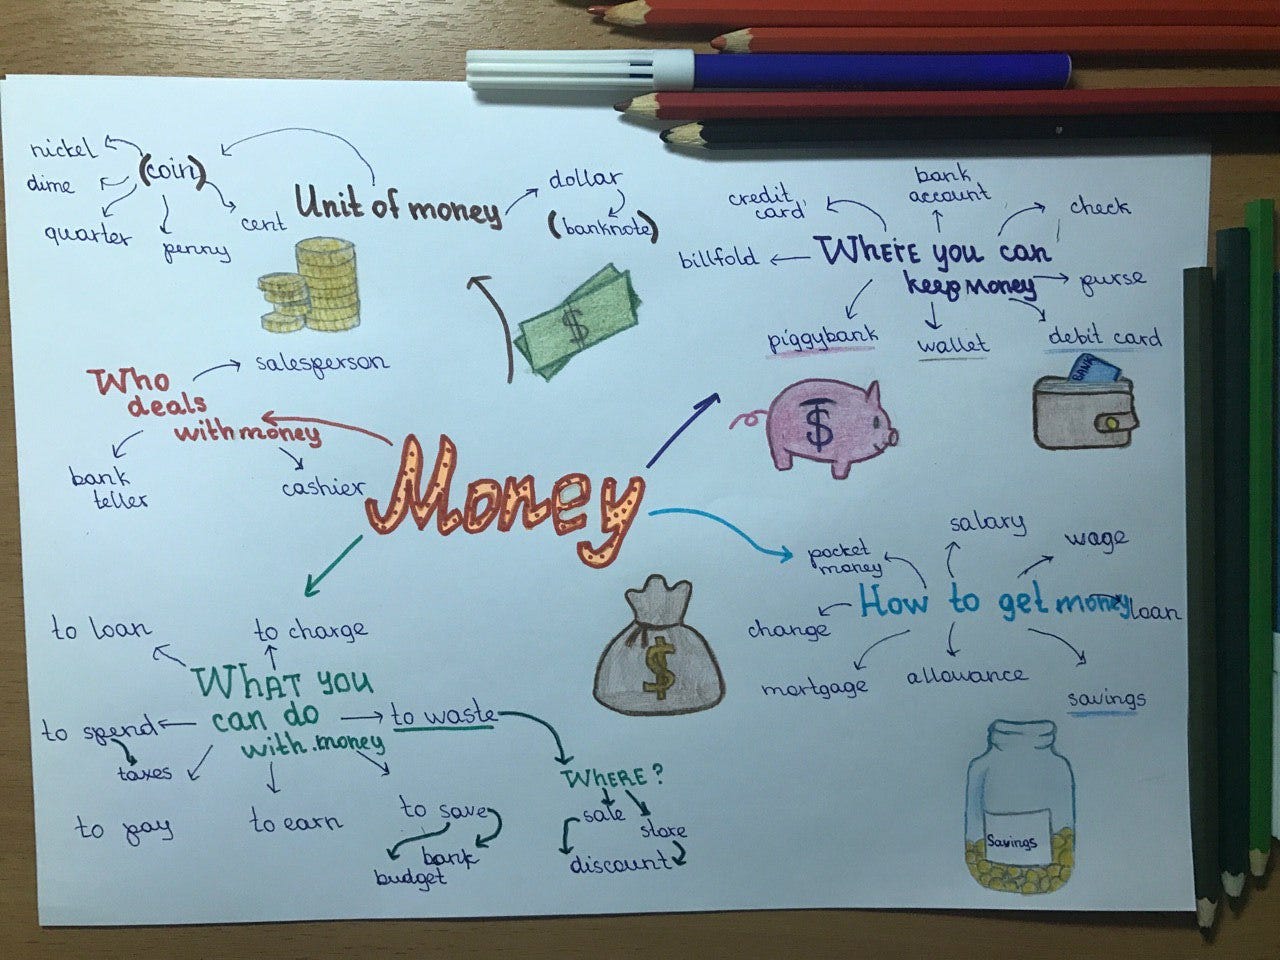 nickel
dime
quarter
penny
cent
(coin)
Unit of money
dollar
(banknote)
$
credit
card
bank
account
check
billfold
Where you can
keep money
purse
piggybank
wallet
debit card
BANK
$
Who
deals
with money
salesperson
bank
teller
cashier
Money
pocket
money
salary
wage
How to get money
loan
change
mortgage
allowance
savings
Savings
$
to loan
to charge
What you
can do
with money
to spend
taxes
to pay
to earn
to save
bank
budget
to waste
Where?
sale
store
discount